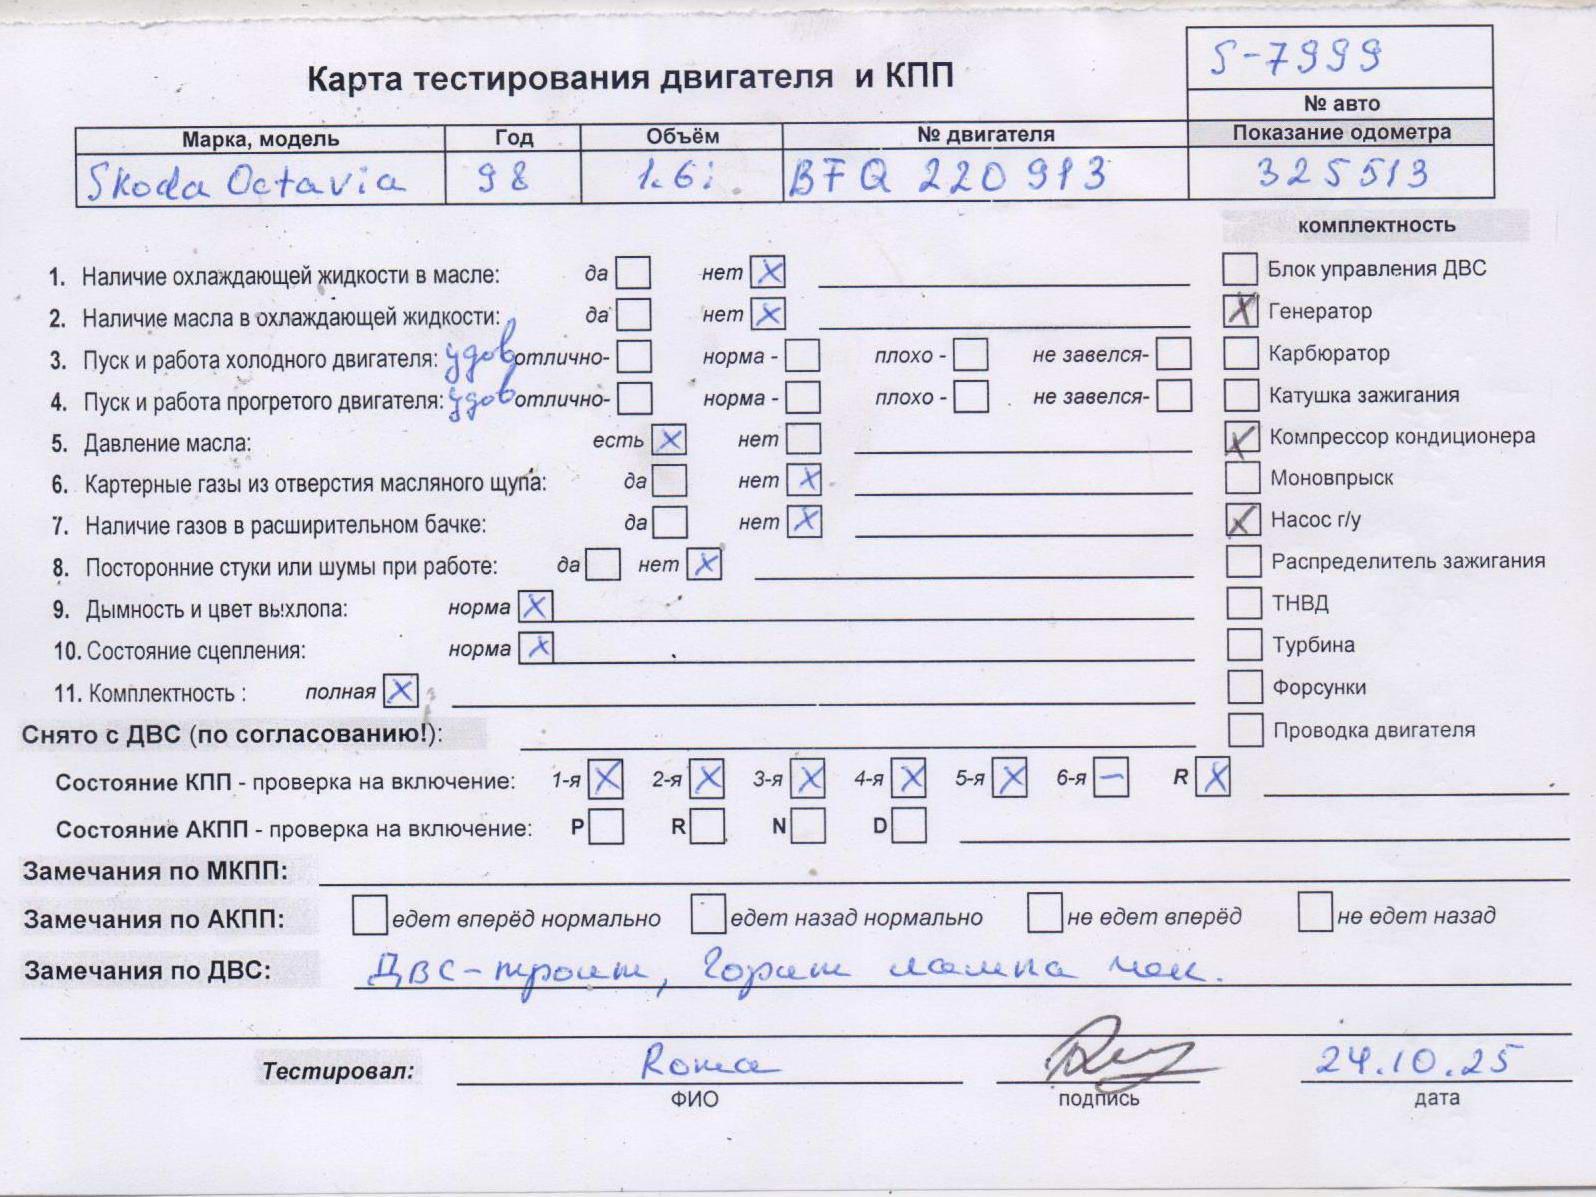 S-7999
Карта тестирования двигателя и КПП
№ авто
Марка, модель Год Объём № двигателя Показание одометра
Skoda Octavia 98 1.6i BFQ 220 913 325513
комплектность
1. Наличие охлаждающей жидкости в масле: да нет X
2. Наличие масла в охлаждающей жидкости: да нет X
3. Пуск и работа холодного двигателя: удов отлично- норма - плохо - не завелся-
4. Пуск и работа прогретого двигателя: удов отлично- норма - плохо - не завелся-
5. Давление масла: есть X нет
6. Картерные газы из отверстия масляного щупа: да нет X
7. Наличие газов в расширительном бачке: да нет X
8. Посторонние стуки или шумы при работе: да нет X
9. Дымность и цвет выхлопа: норма X
10. Состояние сцепления: норма X
11. Комплектность : полная X
Блок управления ДВС
X Генератор
Карбюратор
Катушка зажигания
X Компрессор кондиционера
Моновпрыск
X Насос г/у
Распределитель зажигания
ТНВД
Турбина
Форсунки
Проводка двигателя
Снято с ДВС (по согласованию!):
Состояние КПП - проверка на включение: 1-я X 2-я X 3-я X 4-я X 5-я X 6-я – R X
Состояние АКПП - проверка на включение: P R N D
Замечания по МКПП:
Замечания по АКПП: едет вперёд нормально едет назад нормально не едет вперёд не едет назад
Замечания по ДВС: ДВС-троит, Горит лампа чек.
Тестировал: Roma 24.10.25
ФИО подпись дата